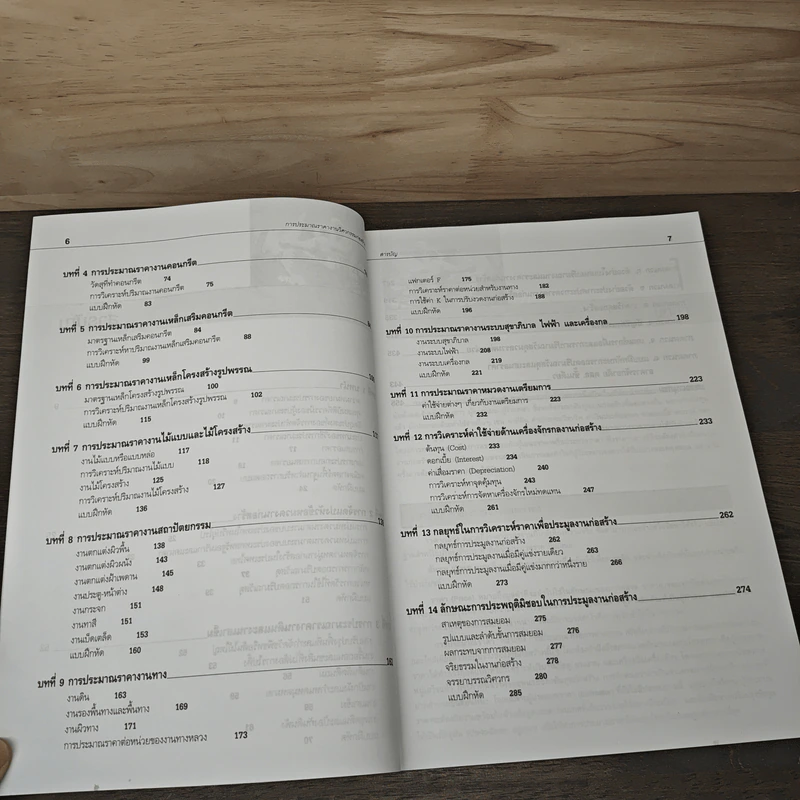 6
การประมาณราคางานวิศวกรรม
บทที่ 4 การประมาณราคางานคอนกรีต
วัสดุที่ทำคอนกรีต 74
การวิเคราะห์ปริมาณงานคอนกรีต 75
แบบฝึกหัด 83
บทที่ 5 การประมาณราคางานเหล็กเสริมคอนกรีต
มาตรฐานเหล็กเสริมคอนกรีต 84
การวิเคราะห์หาปริมาณงานเหล็กเสริมคอนกรีต 88
แบบฝึกหัด 99
บทที่ 6 การประมาณราคางานเหล็กโครงสร้างรูปพรรณ
มาตรฐานเหล็กโครงสร้างรูปพรรณ 100
การวิเคราะห์ปริมาณงานเหล็กโครงสร้างรูปพรรณ 102
แบบฝึกหัด 115
บทที่ 7 การประมาณราคางานไม้แบบและไม้โครงสร้าง
งานไม้แบบหรือแบบหล่อ 117
การวิเคราะห์ปริมาณงานไม้แบบ 118
งานไม้โครงสร้าง 125
การวิเคราะห์ปริมาณงานไม้โครงสร้าง 127
แบบฝึกหัด 136
บทที่ 8 การประมาณราคางานสถาปัตยกรรม
งานตกแต่งผิวพื้น 138
งานตกแต่งผิวผนัง 143
งานตกแต่งฝ้าเพดาน 145
งานประตู-หน้าต่าง 148
งานกระจก 151
งานทาสี 151
งานเบ็ดเตล็ด 153
แบบฝึกหัด 160
บทที่ 9 การประมาณราคางานทาง
งานดิน 163
งานรองพื้นทางและพื้นทาง 169
งานผิวทาง 171
การประมาณราคาต่อหน่วยของงานทางหลวง 173
สารบัญ 7
แฟกเตอร์ F 175
การวิเคราะห์ราคาต่อหน่วยสำหรับงานทาง 182
การใช้ค่า K ในการปรับงวดงานก่อสร้าง 188
แบบฝึกหัด 196
บทที่ 10 การประมาณราคางานระบบสุขาภิบาล ไฟฟ้า และเครื่องกล 198
งานระบบสุขาภิบาล 198
งานระบบไฟฟ้า 208
งานระบบเครื่องกล 219
แบบฝึกหัด 221
บทที่ 11 การประมาณราคาหมวดงานเตรียมการ 223
ค่าใช้จ่ายต่างๆ เกี่ยวกับงานเตรียมการ 223
แบบฝึกหัด 232
บทที่ 12 การวิเคราะห์ค่าใช้จ่ายด้านเครื่องจักรกลงานก่อสร้าง 233
ต้นทุน (Cost) 233
ดอกเบี้ย (Interest) 234
ค่าเสื่อมราคา (Depreciation) 240
การวิเคราะห์หาจุดคุ้มทุน 243
การวิเคราะห์การจัดหาเครื่องจักรใหม่ทดแทน 247
แบบฝึกหัด 261
บทที่ 13 กลยุทธ์ในการวิเคราะห์ราคาเพื่อประมูลงานก่อสร้าง 262
กลยุทธ์การประมูลงานก่อสร้าง 262
กลยุทธ์การประมูลงานเมื่อมีคู่แข่งรายเดียว 263
กลยุทธ์การประมูลงานเมื่อมีคู่แข่งมากกว่าหนึ่งราย 266
แบบฝึกหัด 273
บทที่ 14 ลักษณะการประพฤติมิชอบในการประมูลงานก่อสร้าง 274
สาเหตุของการสมยอม 275
รูปแบบและลำดับขั้นการสมยอม 276
ผลกระทบจากการสมยอม 277
จริยธรรมในงานก่อสร้าง 278
จรรยาบรรณวิศวกร 280
แบบฝึกหัด 285